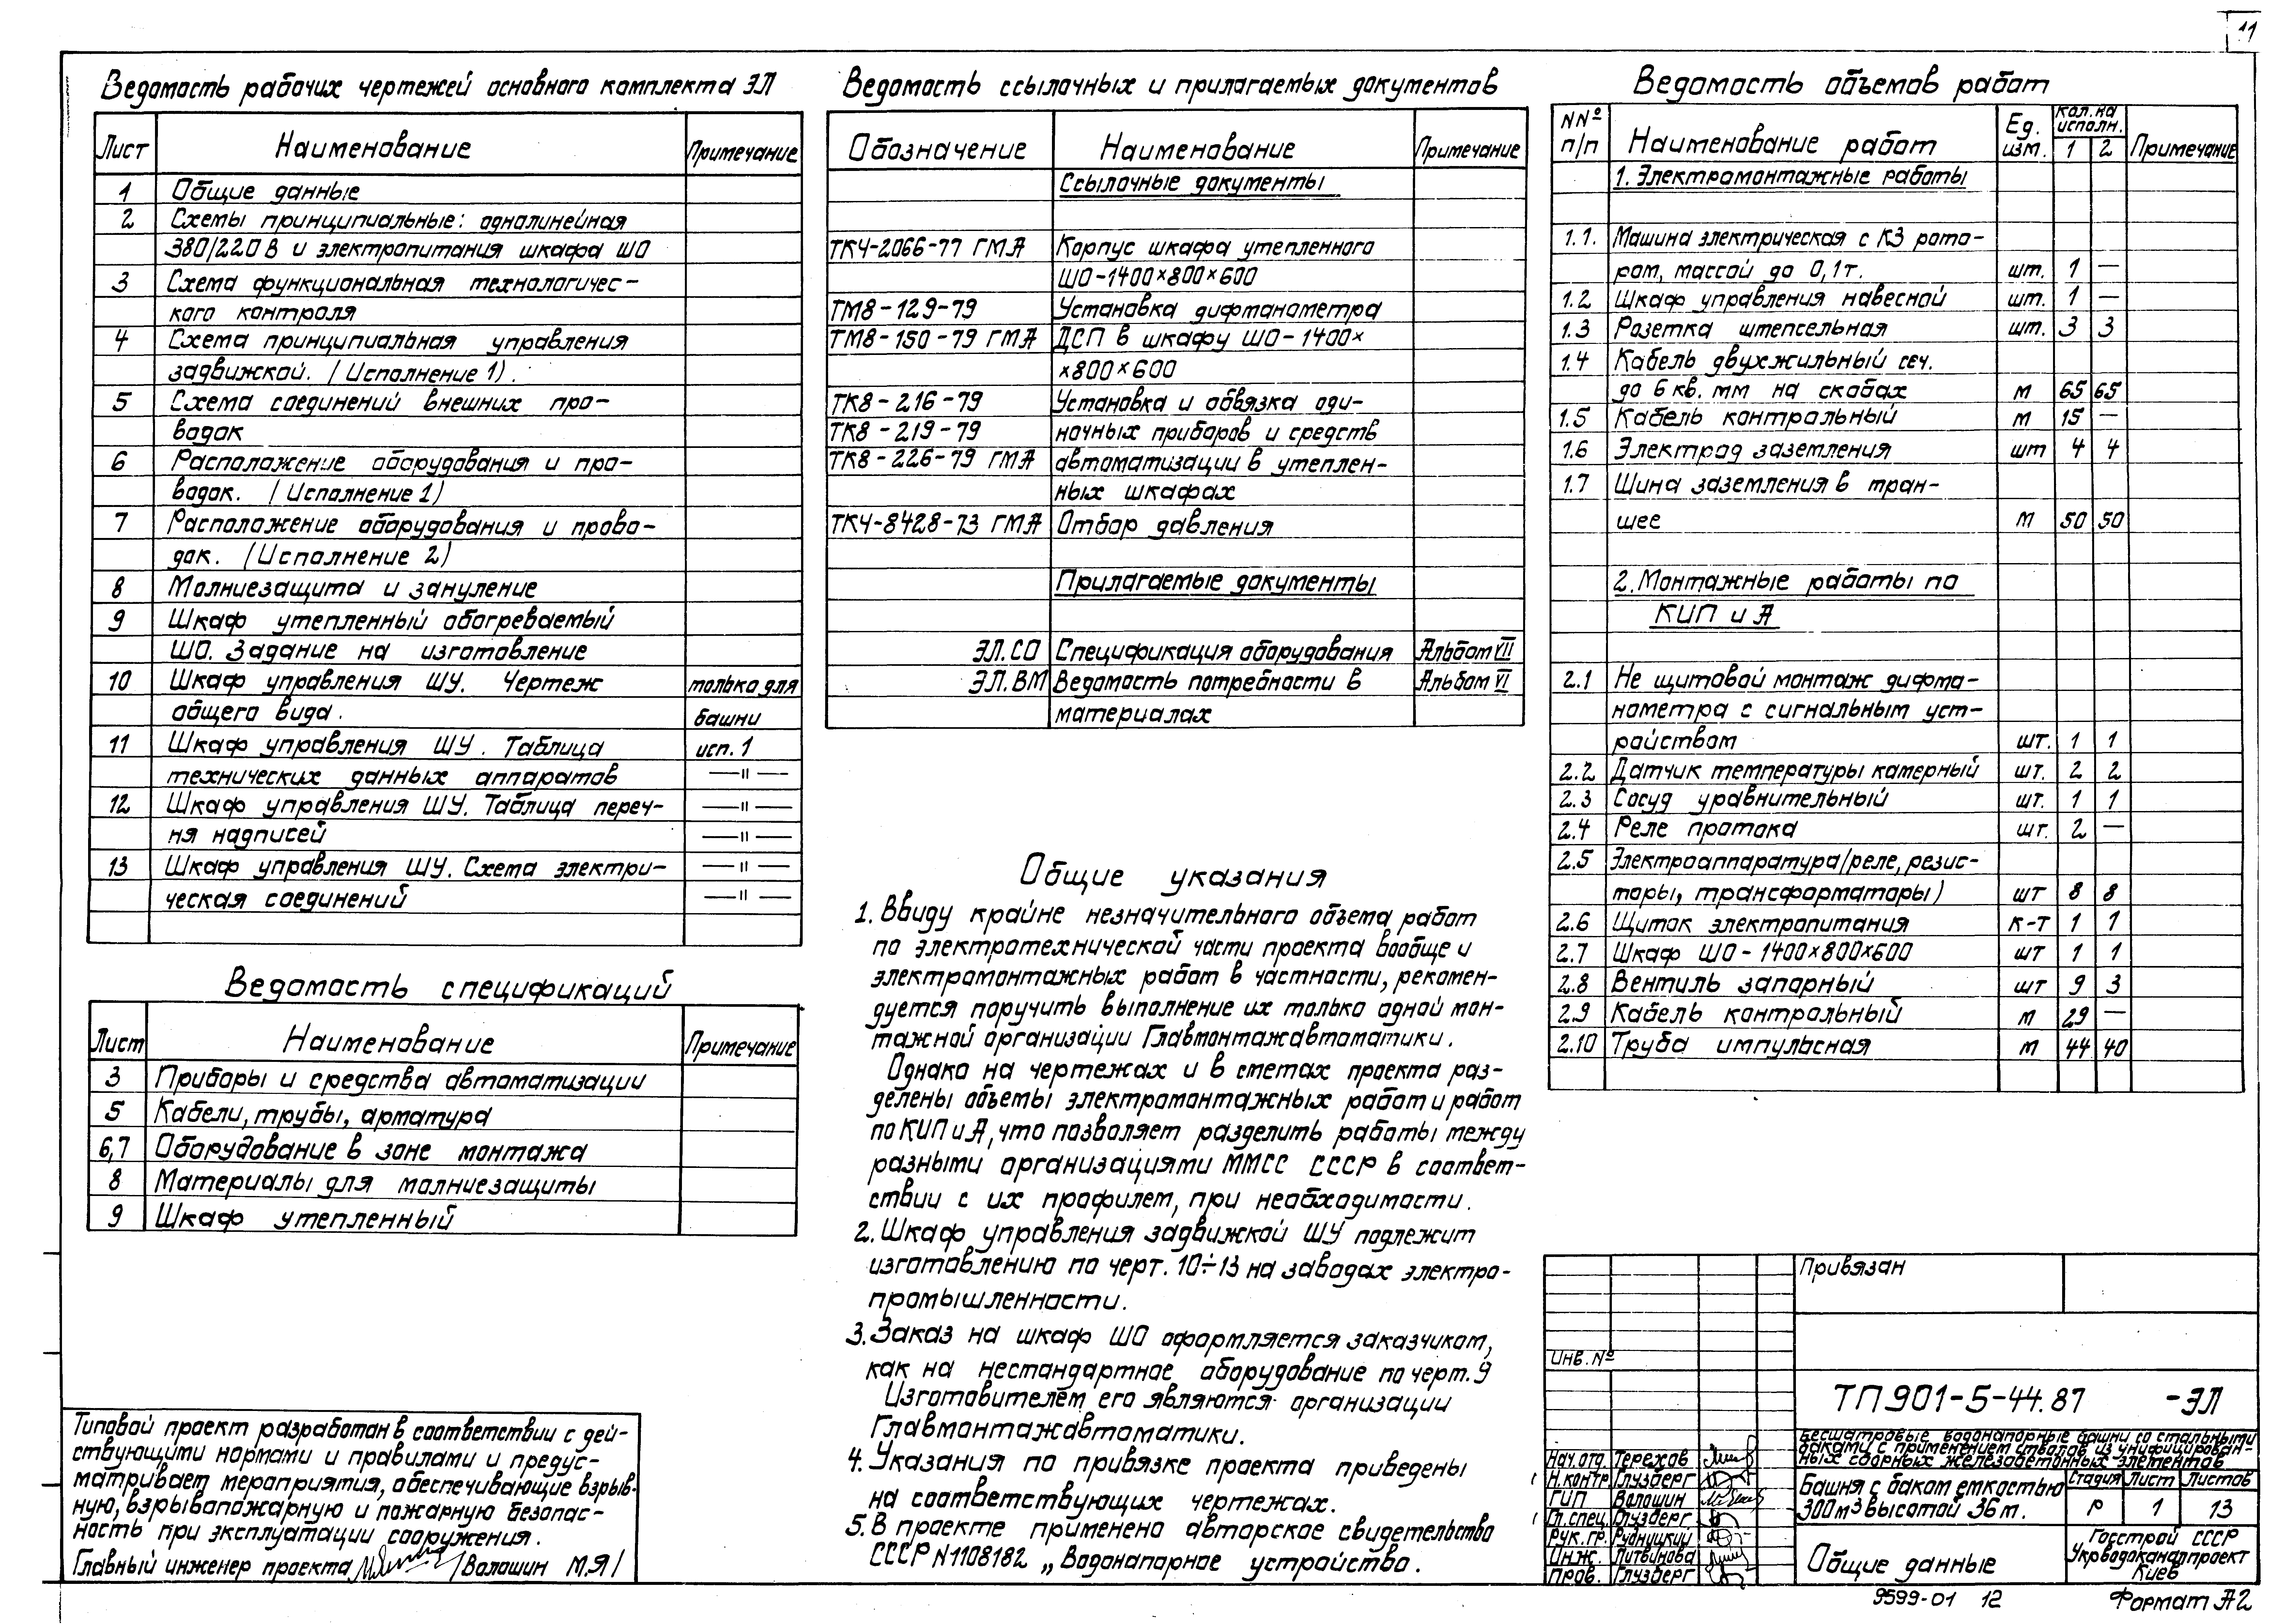 11
Ведомость рабочих чертежей основного комплекта ЭЛ
Лист Наименование Примечание
1 Общие данные
2 Схемы принципиальные: однолинейная
380/220 В и электропитания шкафа ШО
3 Схема функциональная технологичес-
кого контроля
4 Схема принципиальная управления
задвижкой. (Исполнение 1).
5 Схема соединений внешних про-
водок
6 Расположение оборудования и про-
водок. (Исполнение 1)
7 Расположение оборудования и прово-
док. (Исполнение 2)
8 Молниезащита и зануление
9 Шкаф утепленный обогреваемый
ШО. Задание на изготовление
10 Шкаф управления ШУ. Чертеж только для
общего вида. башни
11 Шкаф управления ШУ. Таблица исп. 1
технических данных аппаратов —"—
12 Шкаф управления ШУ. Таблица переч- —"—
ня надписей —"—
13 Шкаф управления ШУ. Схема электри- —"—
ческая соединений —"—
Ведомость спецификаций
Лист Наименование Примечание
3 Приборы и средства автоматизации
5 Кабели, трубы, арматура
6,7 Оборудование в зоне монтажа
8 Материалы для молниезащиты
9 Шкаф утепленный
Типовой проект разработан в соответствии с дей-
ствующими нормами и правилами и предус-
матривает мероприятия, обеспечивающие взрыв-
ную, взрывопожарную и пожарную безопас-
ность при эксплуатации сооружения.
Главный инженер проекта /Волошин М.Я/
Ведомость ссылочных и прилагаемых документов
Обозначение Наименование Примечание
Ссылочные документы
ТКЧ-2066-77 ГМА Корпус шкафа утепленного
ШО-1400×800×600
ТМ8-129-79 Установка дифманометра
ТМ8-150-79 ГМА ДСП в шкафу ШО-1400×
×800×600
ТК8-216-79 Установка и обвязка оди-
ТК8-219-79 ночных приборов и средств
ТК8-226-79 ГМА автоматизации в утеплен-
ных шкафах
ТКЧ-8428-73 ГМА Отбор давления
Прилагаемые документы
ЭЛ.СО Спецификация оборудования Альбом VII
ЭЛ.ВМ Ведомость потребности в Альбом VI
материалах
Общие указания
1. Ввиду крайне незначительного объема работ
по электротехнической части проекта вообще и
электромонтажных работ в частности, рекомен-
дуется поручить выполнение их только одной мон-
тажной организации Главмонтажавтоматики.
Однако на чертежах и в сметах проекта раз-
делены объемы электромонтажных работ и работ
по КИП и А, что позволяет разделить работы между
разными организациями ММСС СССР в соответ-
ствии с их профилем, при необходимости.
2. Шкаф управления задвижкой ШУ подлежит
изготовлению по черт. 10÷13 на заводах электро-
промышленности.
3. Заказ на шкаф ШО оформляется заказчиком,
как на нестандартное оборудование по черт. 9
Изготовителем его являются организации
Главмонтажавтоматики.
4. Указания по привязке проекта приведены
на соответствующих чертежах.
5. В проекте применено авторское свидетельство
СССР N1108182 „Водонапорное устройство.
Ведомость объемов работ
NNº п/п Наименование работ Ед. изм. Кол. на исполн. 1 2 Примечание
1. Электромонтажные работы
1.1. Машина электрическая с КЗ рото-
ром, массой до 0,1т. шт. 1 —
1.2 Шкаф управления навесной шт. 1 —
1.3 Розетка штепсельная шт. 3 3
1.4 Кабель двухжильный сеч.
до 6 кв. мм на скобах м 65 65
1.5 Кабель контрольный м 15 —
1.6 Электрод заземления шт 4 4
1.7 Шина заземления в тран-
шее м 50 50
2. Монтажные работы по
КИП и А
2.1 Не щитовой монтаж дифма-
нометра с сигнальным уст-
райством шт. 1 1
2.2 Датчик температуры камерный шт. 2 2
2.3 Сосуд уравнительный шт. 1 1
2.4 Реле протока шт. 2 —
2.5 Электроаппаратура/реле, резис-
торы, трансформаторы) шт 8 8
2.6 Щиток электропитания к-т 1 1
2.7 Шкаф ШО-1400×800×600 шт 1 1
2.8 Вентиль запорный шт 9 3
2.9 Кабель контрольный м 29 —
2.10 Труба импульсная м 44 40
Привязан
Инв. Nº
ТП 901-5-44.87 -ЭЛ
Бесшатровые водонапорные башни со стальными
баками с применением стволов из унифицирован-
ных сборных железобетонных элементов
Нач. отд. Терехов
Н.контр Глузберг
ГИП Волошин
Гл.спец. Глузберг
Рук. гр. Рудницкий
Инж. Литвинова
Пров. Глузберг
Башня с баком емкостью
300 м³ высотой 36 м.
Стадия Лист Листов
Р 1 13
Общие данные
Госстрой СССР
Укрводоканалпроект
Киев
9599-01 12 Формат А2